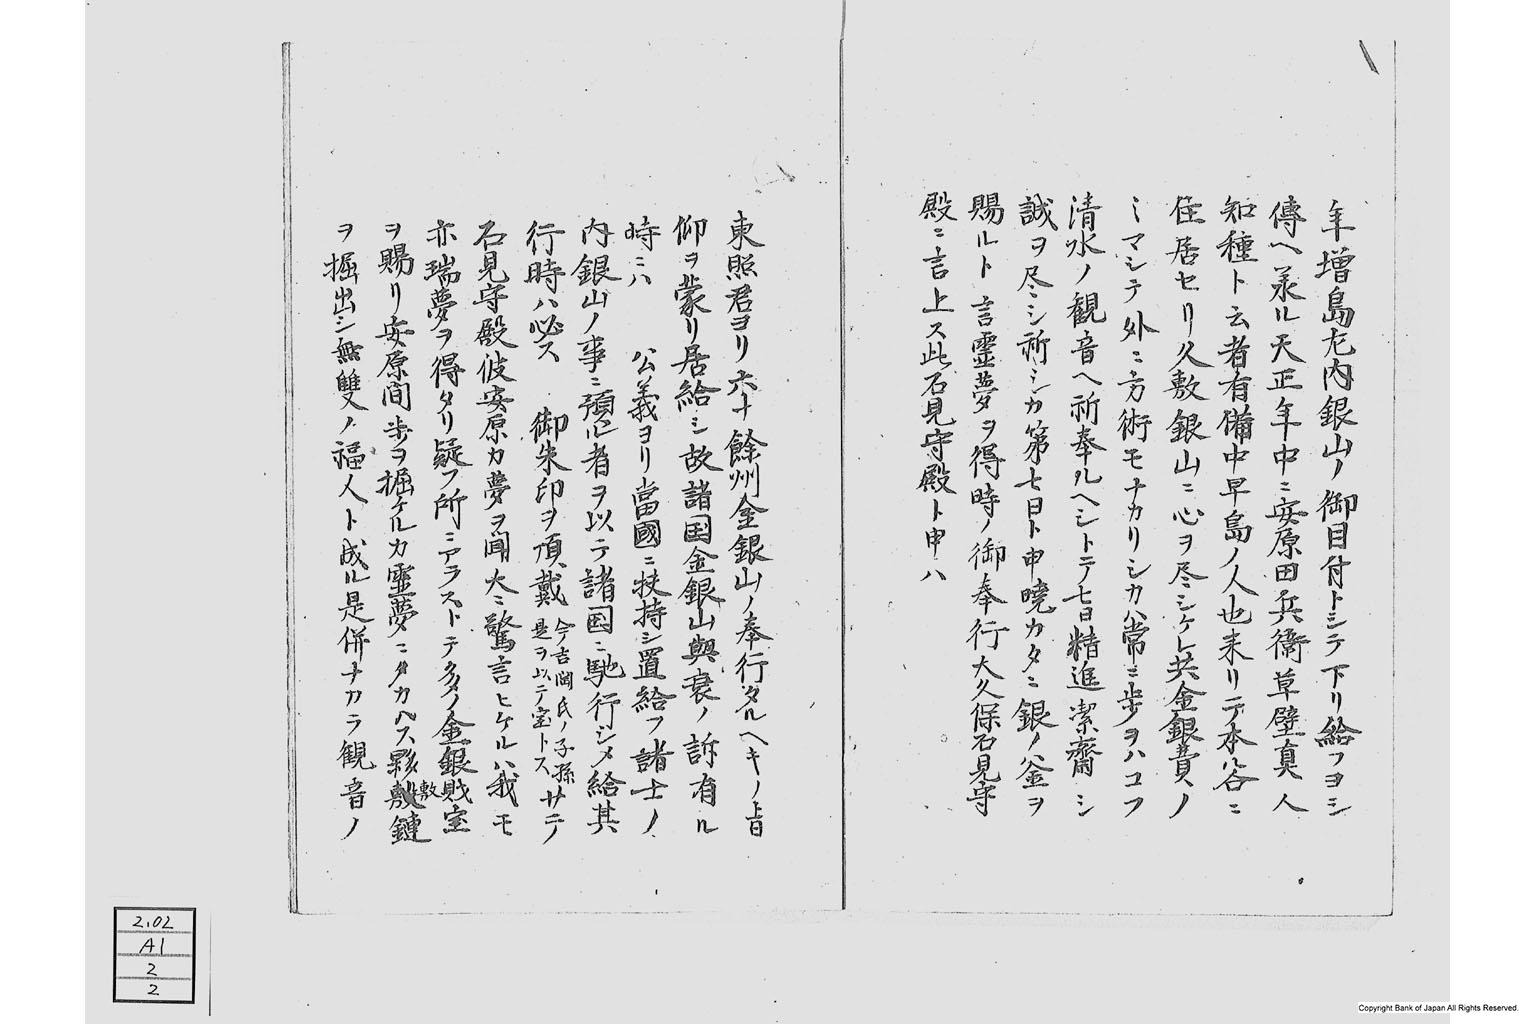 年増島左内銀山ノ御目付トシテ下リ給フヨシ
傳ヘ承ル天正年中ニ安原田兵衛草壁真人
知種ト云者有備中早島ノ人也来リテ本谷ニ
住居セリ久敷銀山ニ心ヲ尽シケレ共金銀費ノ
ミマシテ外ニ方術モナカリシカハ常ニ歩ヲハコフ
清水ノ観音ヘ祈奉ルヘシトテ七日精進潔齋シ
誠ヲ尽シ祈シカ第七日ト申暁カタニ銀ノ釜ヲ
賜ルト言霊夢ヲ得時ノ御奉行大久保石見守
殿ニ言上ス此石見守殿ト申ハ
東照君ヨリ六十餘州金銀山ノ奉行タルヘキノ旨
仰ヲ蒙リ居給シ故諸国金銀山興衰ノ訴有ル
時ニハ 公義ヨリ當國ニ扶持シ置給フ諸士ノ
内銀山ノ事ニ預ル者ヲ以テ諸国ニ馳行シメ給其
行時ハ必ス 御朱印ヲ頂戴 今吉岡氏ノ子孫是ヲ以テ宝トス サテ
石見守殿彼安原カ夢ヲ聞大ニ驚言ヒケルハ我モ
亦瑞夢ヲ得タリ疑フ所ニアラストテ多クノ金銀財宝
ヲ賜リ安原間歩ヲ掘ケルカ霊夢ニタカハス夥敷鏈
敷
ヲ掘出シ無雙ノ福人ト成ル是併ナカラ観音ノ
2.02
A1
2
2
Copyright Bank of Japan All Rights Reserved.